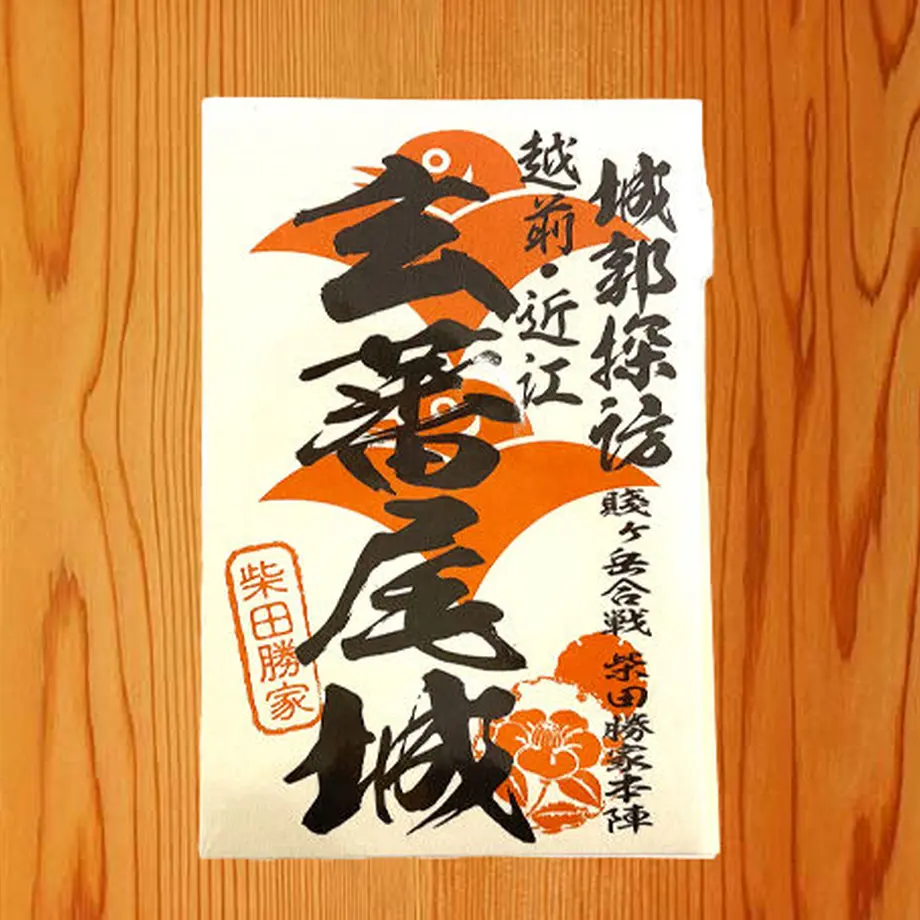 城郭探訪
賤ヶ岳合戦 柴田勝家本陣
越前・近江
玄蕃尾城
柴田勝家